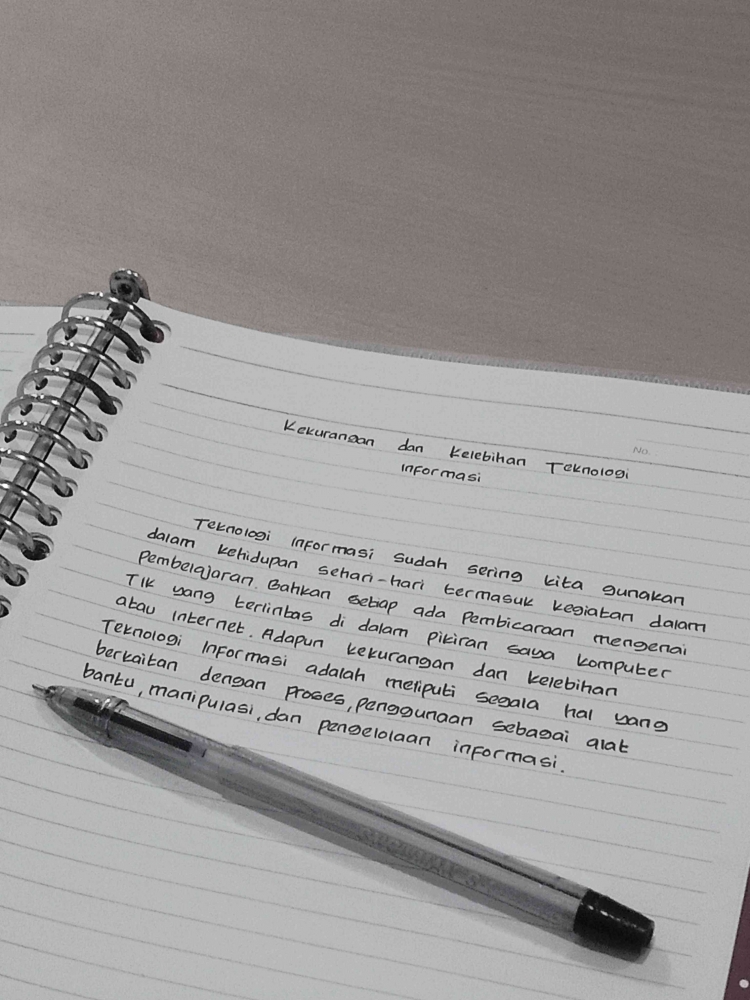 No.
Kekurangan dan Kelebihan Teknologi
Informasi
Teknologi Informasi sudah sering kita gunakan
dalam kehidupan sehari-hari termasuk kegiatan dalam
pembelajaran. Bahkan setiap ada pembicaraan mengenai
TIK yang terlintas di dalam pikiran saya komputer
atau internet. Adapun kekurangan dan kelebihan
Teknologi Informasi adalah meliputi segala hal yang
berkaitan dengan proses, penggunaan sebagai alat
bantu, manipulasi, dan pengelolaan informasi.